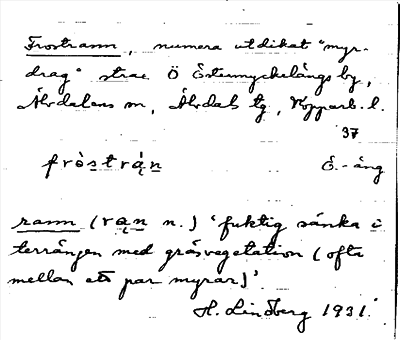 Frostrann, numera utdikat "myr-
drag" strax Ö Östermyckelängs by,
Älvdalens sn, Älvdals tg, Kopparb. l.
37
fròstrą́n
E.-äng
rann (rąn n.) 'fuktig sänka i
terrängen med gräsvegetation (ofta
mellan ett par myrar)'.
H. Lindberg 1931.